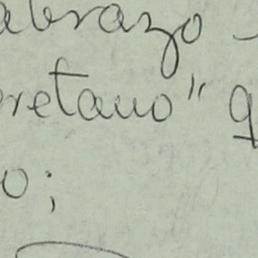 abrazo
retano" q
o;